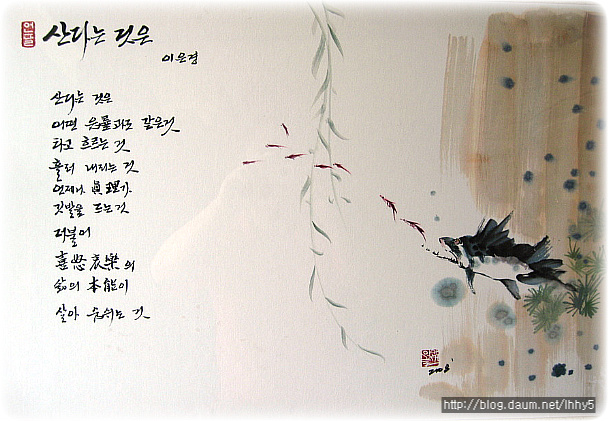 산다는 것은
산다는 것은
어떤 같은것
타고 흐르는 것
흘러 내리는 것
언제나 眞理가
깃발을 뜨는것
더불어
喜怒哀樂의
삶의 本能이
살아 숨쉬는 것
http://blog.daum.net/lhhy5